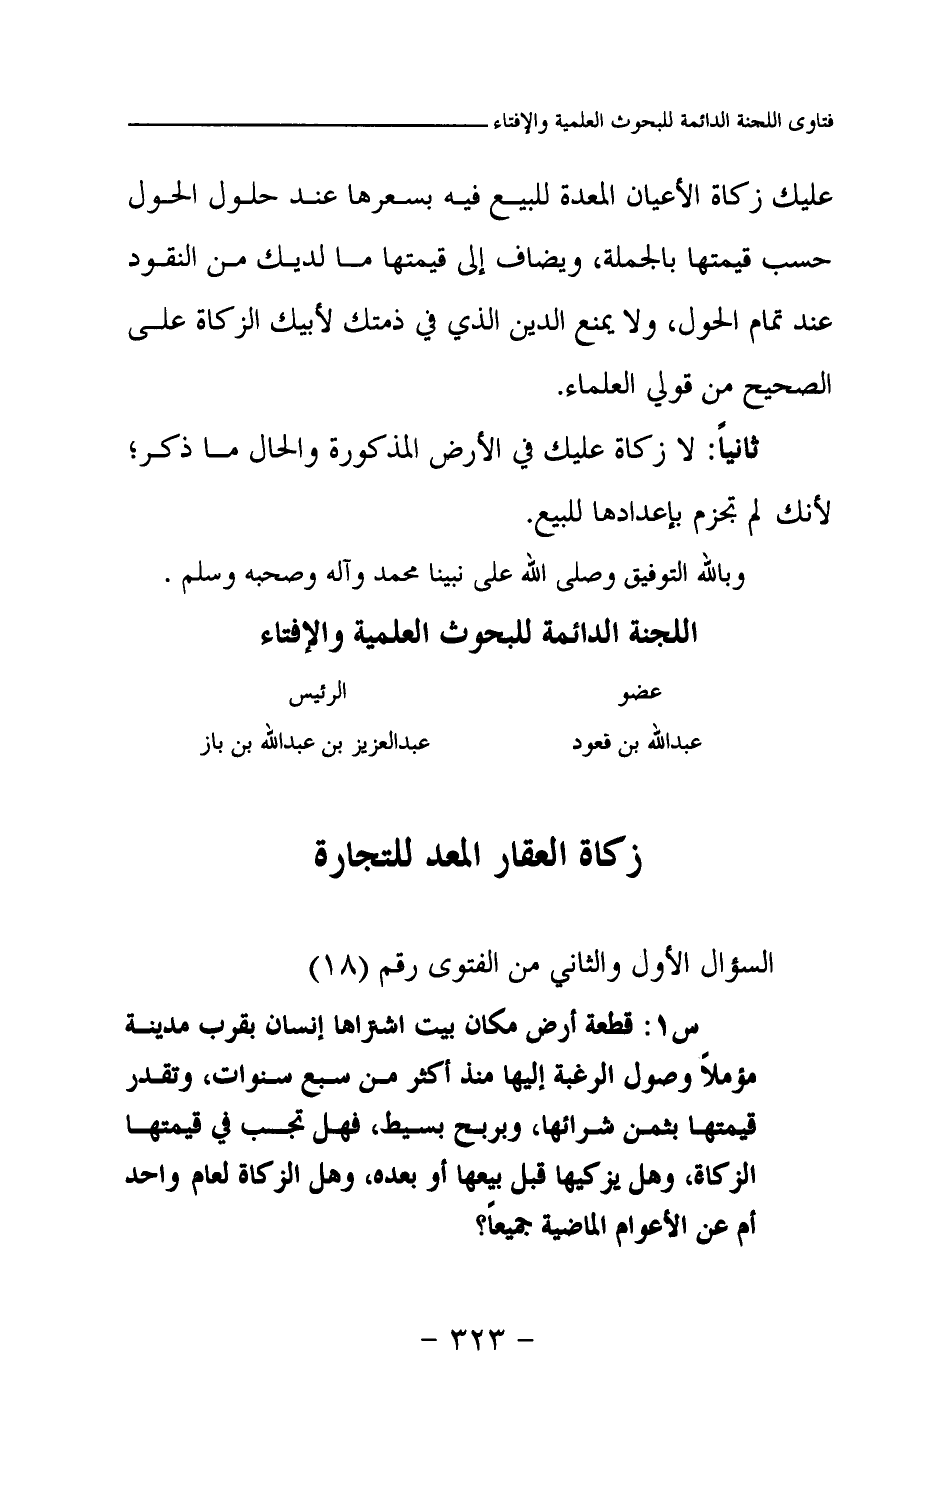 فتاوى اللجنة الدائمة للبحوث العلمية والإفتاء
عليك زكاة الأعيان المعدة للبيع فيه بسعرها عند حلول الحول
حسب قيمتها بالجملة، ويضاف إلى قيمتها ما لديك من النقود
عند تمام الحول، ولا يمنع الدين الذي في ذمتك لأبيك الزكاة على
الصحيح من قولي العلماء.
ثانياً: لا زكاة عليك في الأرض المذكورة والحال ما ذكر؛
لأنك لم تجزم بإعدادها للبيع.
وبالله التوفيق وصلى الله على نبينا محمد وآله وصحبه وسلم .
اللجنة الدائمة للبحوث العلمية والإفتاء
عضو الرئيس
عبدالله بن قعود عبدالعزيز بن عبدالله بن باز
زكاة العقار المعد للتجارة
السؤال الأول والثاني من الفتوى رقم (١٨)
س١: قطعة أرض مكان بيت اشتراها إنسان بقرب مدينة
مؤملاً وصول الرغبة إليها منذ أكثر من سبع سنوات، وتقدر
قيمتها بثمن شرائها، وبربح بسيط، فهل تجب في قيمتها
الزكاة، وهل يزكيها قبل بيعها أو بعده، وهل الزكاة لعام واحد
أم عن الأعوام الماضية جميعاً؟
- ٣٢٣ -